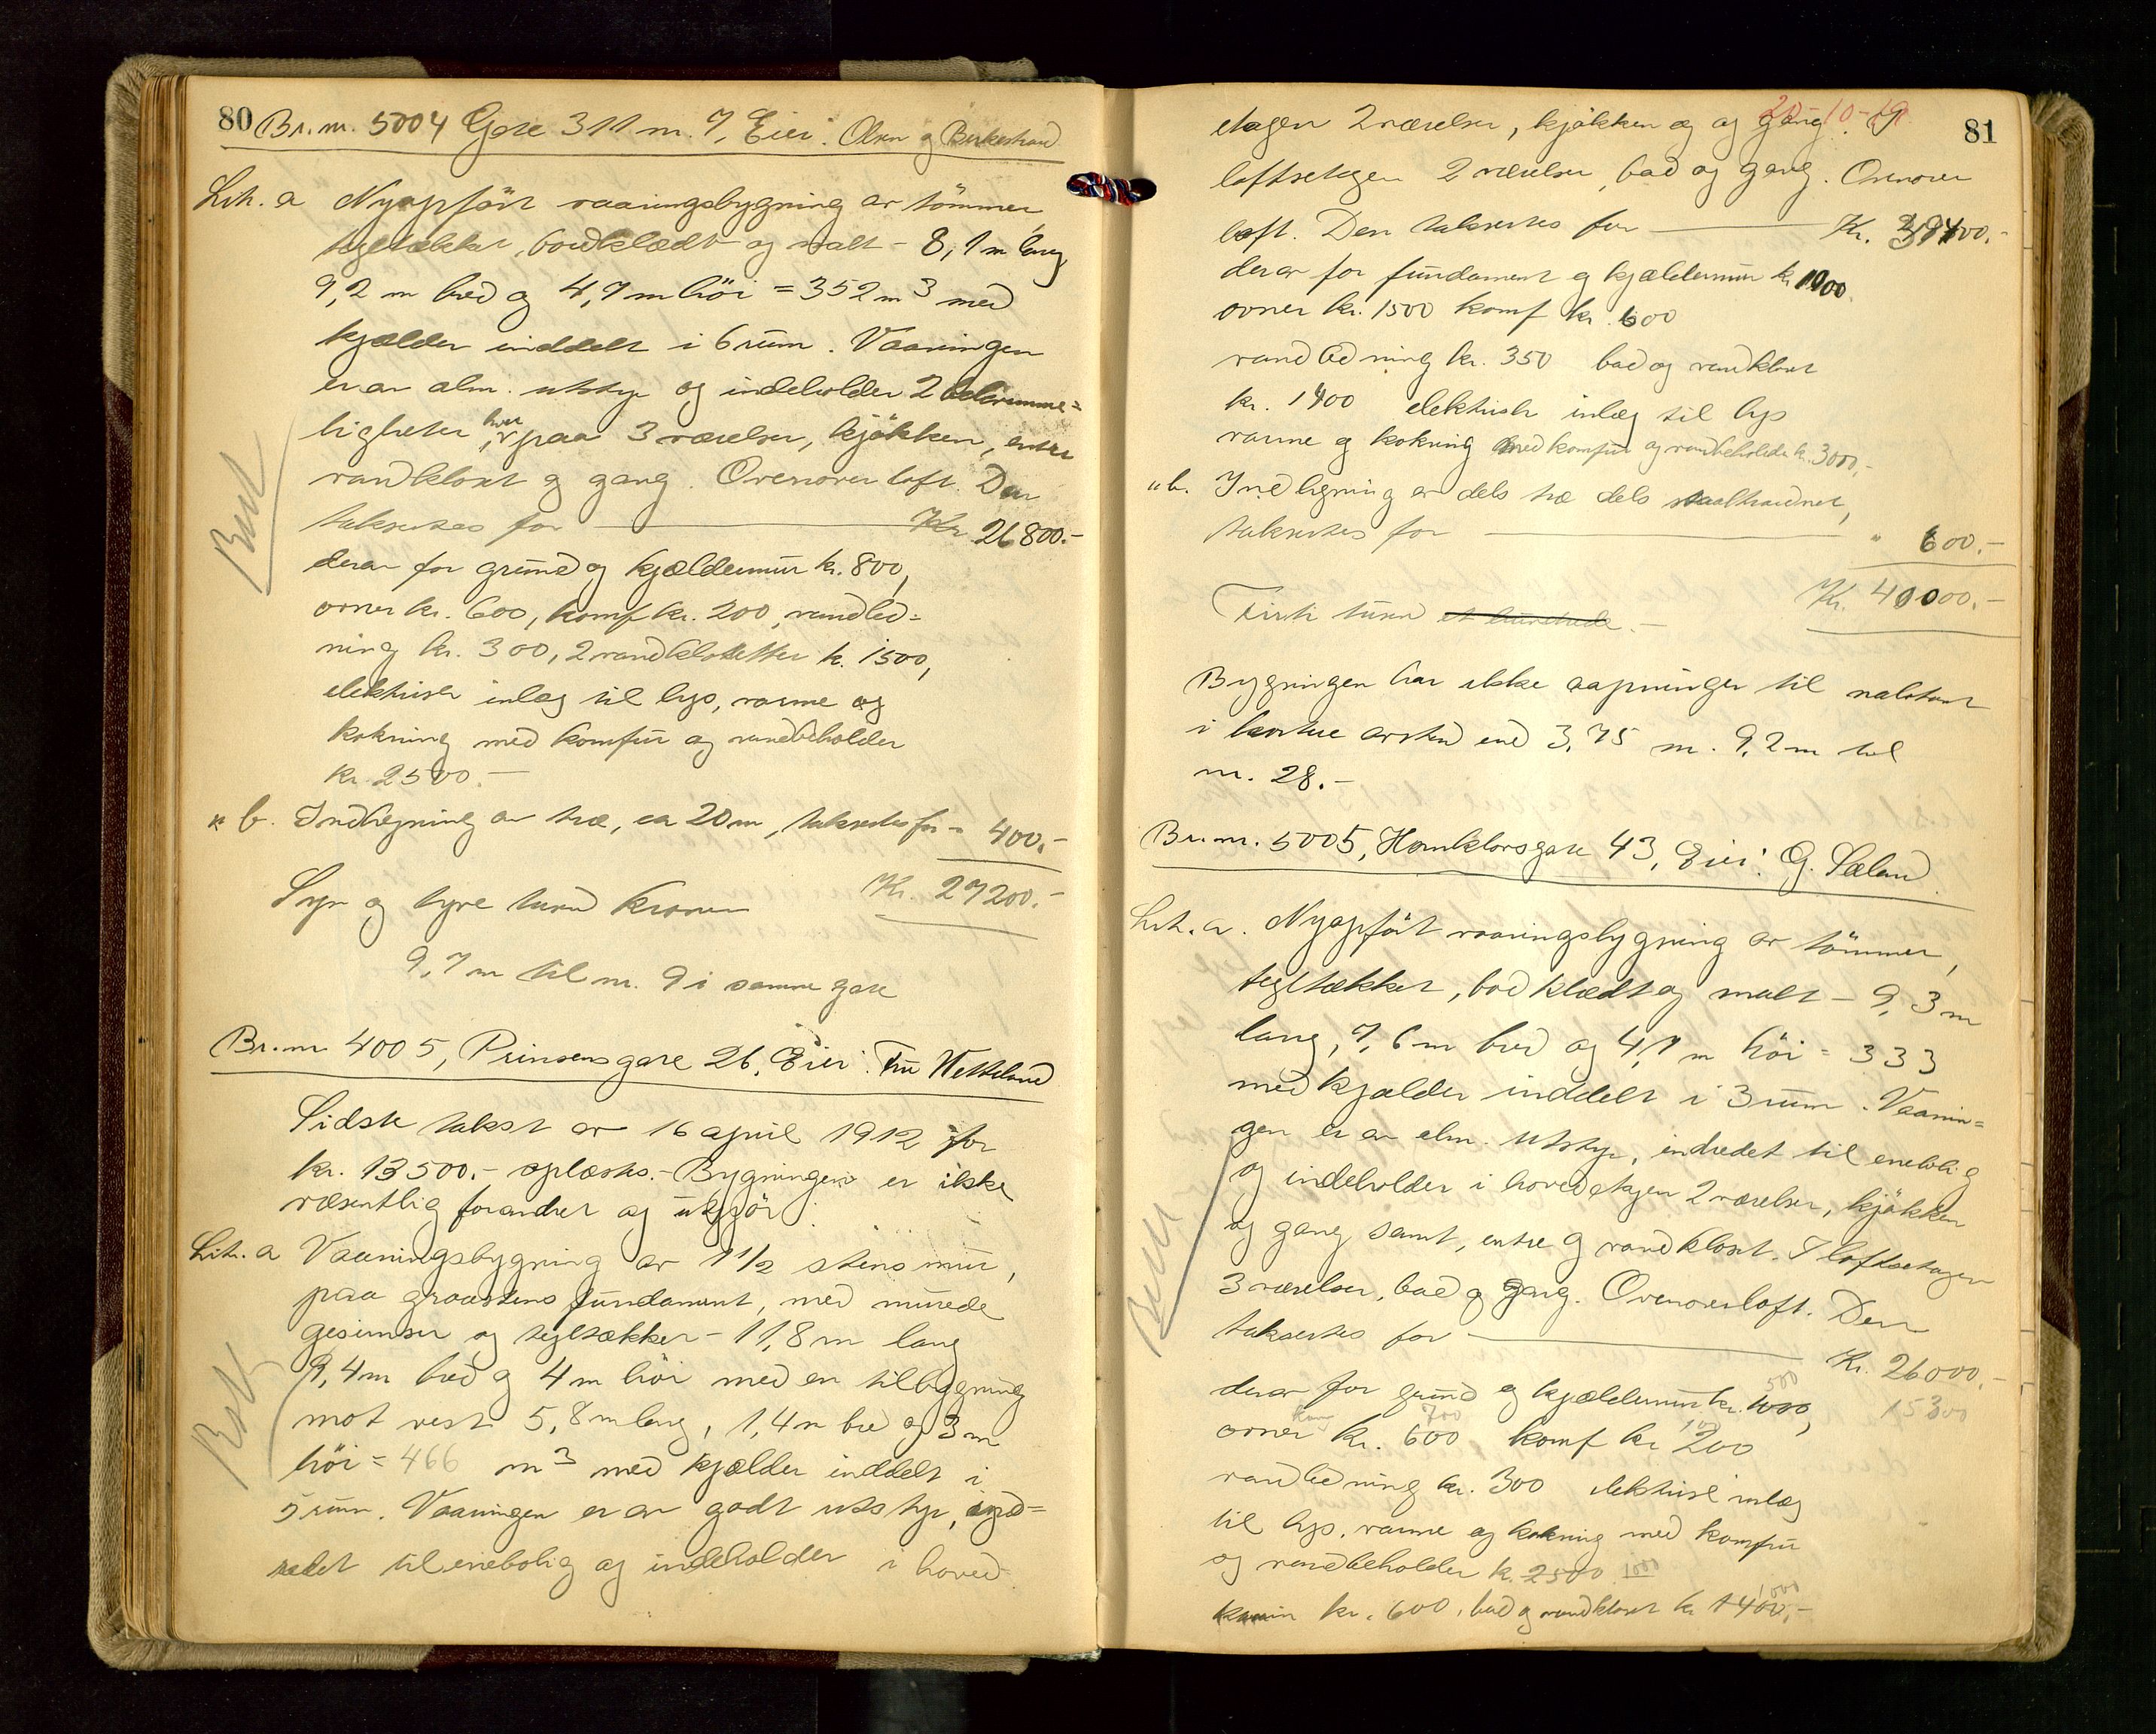 80
Br. nr. 5004 Gate 311 nr. 7, Eier: Olsen og Birkestrand
Lit. a Nyopført vaaningsbygning av tømmer,
tegltækket, bordklædt og malt - 8,1 m lang
9,2 m bred og 4,7 m høi = 352 m3 med
kjælder inddelt i 6 rum. Vaaningen
er av alm. utstyr og indeholder 2 bekvemme=
ligheter hver paa 3 værelser, kjøkken, entre
vandkloset og gang. Ovenover loft. Den
taksertes for Kr. 26800.-
derav for grund og kjældermur kr. 800,
ovner kr. 600, komf kr. 200, vandled=
ning kr. 300, 2 vandklosetter kr. 1500,
elektrisk inlæg til lys, varme og
kokning med komfur og vandbeholder
kr. 2500.-
" b. Indhegning av træ, ca 20 m, taksertes for " 400.-
Kr. 27200.-
Syv og tyve tusen kroner
9,7 m til nr. 9 i samme gate
Br. nr 4005, Prinsensgate 26, Eier: Fru Wetteland
Sidste takst av 16 april 1912 for
kr. 13500.- oplæstes. - Bygningen er ikke
væsentlig forandret og utgjør:
Lit. a Vaaningsbygning av 1 1/2 stens mur,
paa graastens fundament, med murede
gesimser og tegltækket - 11,8 m lang
9,4 m bred og 4 m høi med en tilbygning
mot vest 5,8 m lang, 1,4 m bred og 3 m
høi = 466 m3 med kjælder inddelt i
5 rum. Vaaningen er av godt utstyr, ind=
redet til enebolig og indeholder i hoved
Bolt
Bolt
20-10-19
81
etagen 2 værelser, kjøkken og gang. I
loftsetagen 2 værelser, bad og gang. Ovenover
loft. Den taksertes for Kr. 39400.-
derav for fundament og kjældermur kr 1000
ovner kr. 1500 komf kr. 600
vandledning kr. 350 bad og vandkloset
kr. 1400 elektrisk inlæg til lys
varme og kokning med komfur og vandbeholder kr. 3000,-
" b. Indhegning er dels træ dels staaltraadnet,
taksertes for " 600.-
Kr. 40000.-
Firti tusen et hundrede.-
Bygningen har ikke aapninger til nabotomt
i kortere avstand end 3,75 m. 9,2 m til
nr. 28.-
Br. nr. 5005, Hornklovsgate 43, Eier: G. Sæland.
Lit. a. Nyopført vaaningsbygning av tømmer,
tegltækket, bordklædt og malt - 9,3 m
lang, 7,6 m bred og 4,7 m høi = 333
med kjælder inddelt i 3 rum. Vaanin=
gen er av alm. utstyr, indredet til enebolig
og indeholder i hovedetagen 2 værelser, kjøkken
og gang samt, entre og vandkloset. I loftsetagen
3 værelser, bad og gang. Ovenover loft. Den
taksertes for Kr. 26000.-
15300
derav for grund og kjældermur kr. 1000, 500
ovner kr. 600 700 komf kr 200 100
vandledning kr. 300 elektrisk inlæg
til lys, varme og kokning med komfur
og vandbeholder kr. 2500 1000
kamin kr. 600, bad og vandkloset kr 1400,- 1000
Bolt